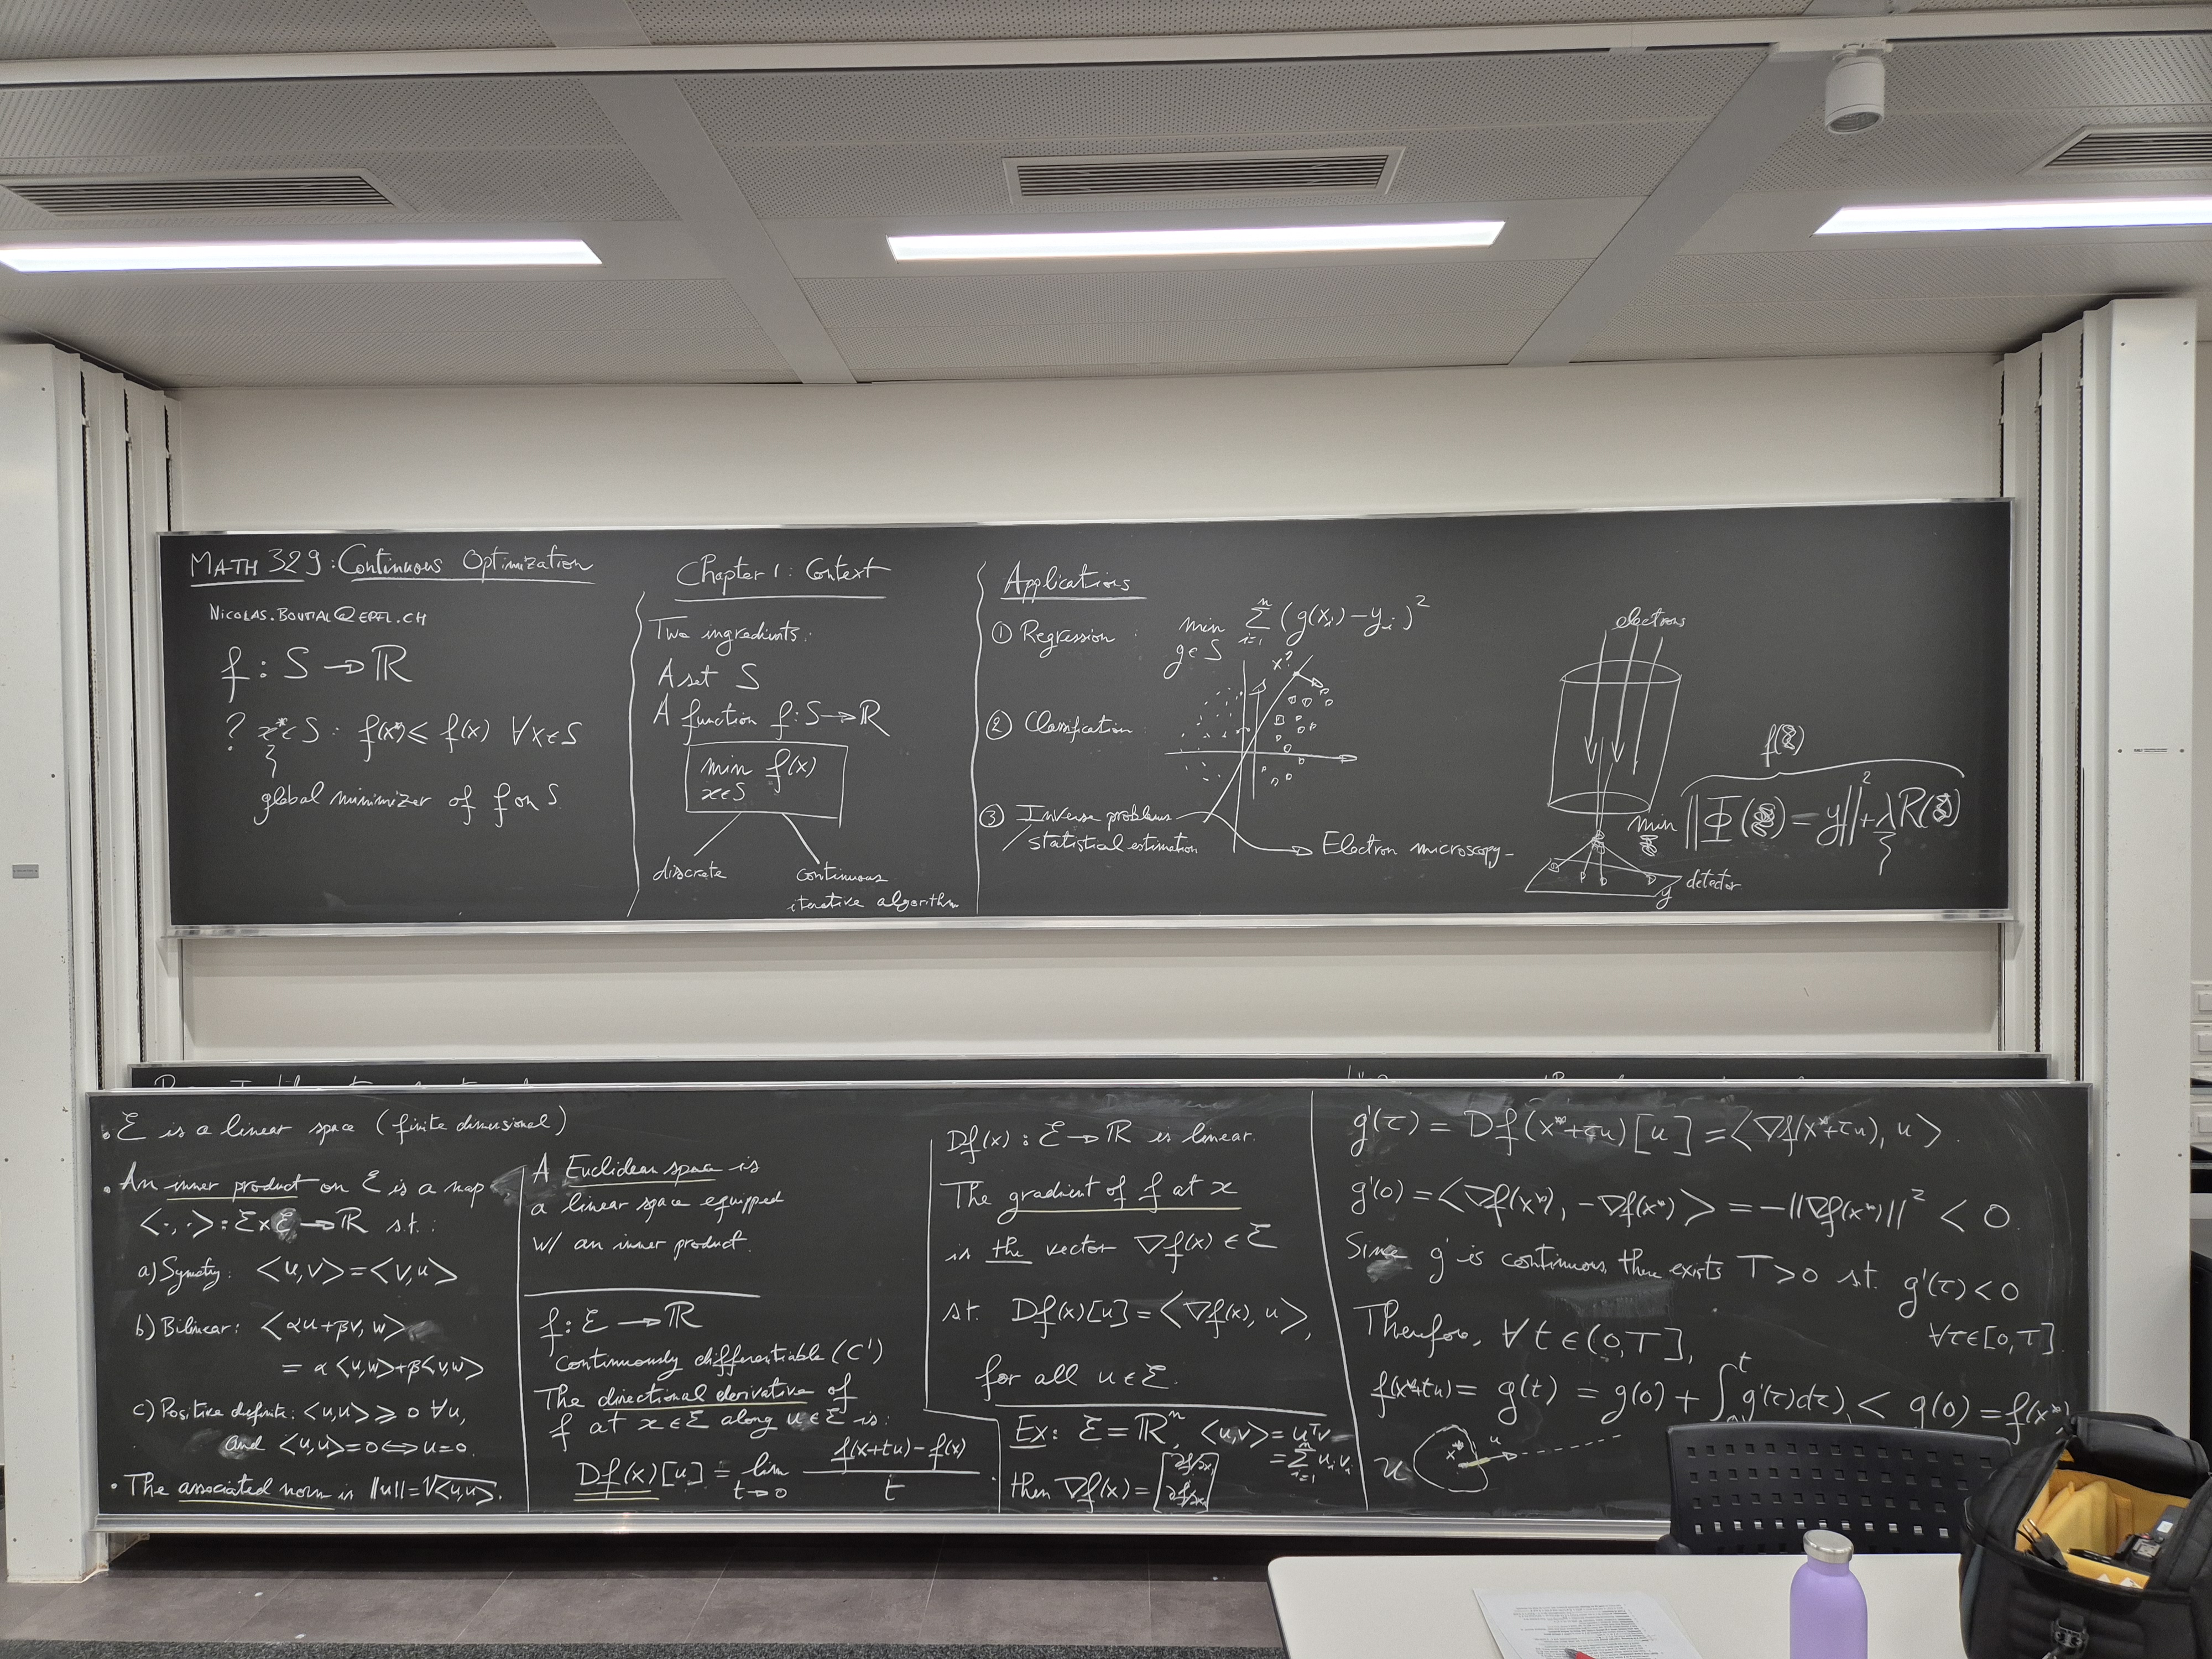 MATH 329: Continuous Optimization
NICOLAS.BOUMAL@EPFL.CH
f : S → ℝ
? x* ∈ S : f(x*) ≤ f(x) ∀x∈S
global minimizer of f on S
Chapter 1: Context
Two ingredients:
A set S
A function f: S → ℝ
min f(x)
x∈S
discrete
continuous
iterative algorithm
Applications
① Regression : min Σ (g(xᵢ) − yᵢ)²
g∈S i=1 n
x?
② Classification :
③ Inverse problems
/ statistical estimation
Electron microscopy
electrons
f(
min ‖Φ( ) − y‖² + λR( )
detector
y
. ℰ is a linear space (finite dimensional)
. An inner product on ℰ is a map
<·,·> : ℰ×ℰ → ℝ s.t.:
a) Symetry: <u,v> = <v,u>
b) Bilinear: <αu+βv, w>
= α<u,w>+β<v,w>
c) Positive definite: <u,u> ≥ 0 ∀u,
and <u,u>=0 ⟺ u=0.
. The associated norm is ‖u‖=√<u,u>.
A Euclidean space is
a linear space equipped
w/ an inner product.
f: ℰ → ℝ
continuously differentiable (C¹)
The directional derivative of
f at x∈ℰ along u∈ℰ is:
Df(x)[u] = lim (f(x+tu) − f(x)) / t .
t→0
Df(x) : ℰ → ℝ is linear.
The gradient of f at x
is the vector ∇f(x) ∈ ℰ
st. Df(x)[u] = <∇f(x), u>,
for all u∈ℰ.
Ex: ℰ = ℝⁿ, <u,v> = uᵀv
= Σ uᵢvᵢ
i=1 n
then ∇f(x) =
g'(τ) = Df(x*+τu)[u] = <∇f(x*+τu), u>.
g'(0) = <∇f(x*), −∇f(x*)> = −‖∇f(x*)‖² < 0.
Since g' is continuous, there exists T>0 st. g'(τ)<0
∀τ∈[0,T].
Therefore, ∀t∈(0,T],
f(x*+tu) = g(t) = g(0) + ∫ g'(τ)dτ < g(0) = f(x*)
t
x* u
U